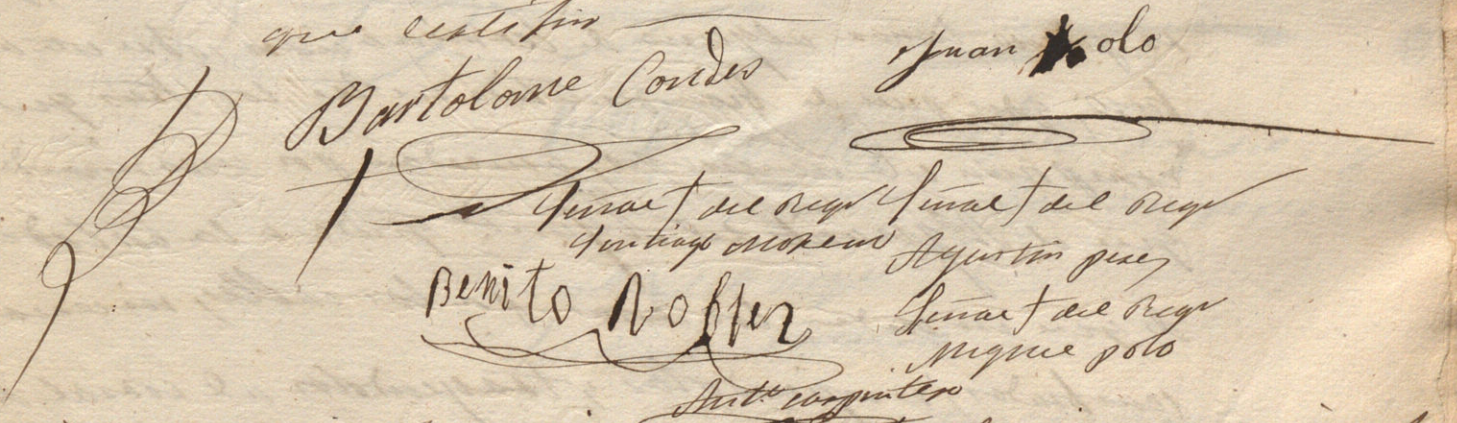 que certifico
Bartolome Condes
Juan Polo
Señal † del Regr
Santiago Moreno
Señal † del Regr
Agustin perez
Benito
Señal † del Regr
Miguel polo
Antto carpintero